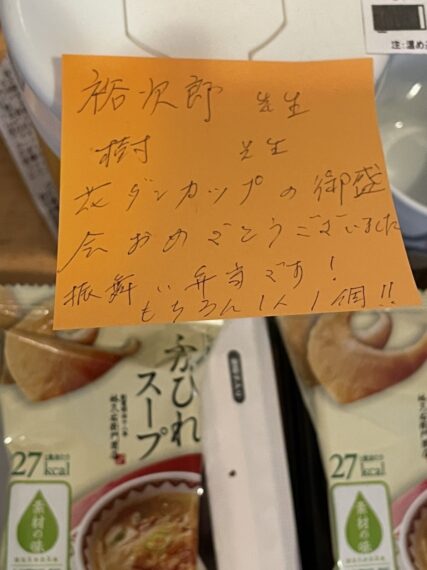 注:温め
裕次郎 先生
樹 先生
花ダンカップの御盛
会おめでとうございました
振舞い弁当です!
もちろん1人1個!!
ふかひれ
スープ
27kcal
素材の味
27kcal
素材の味